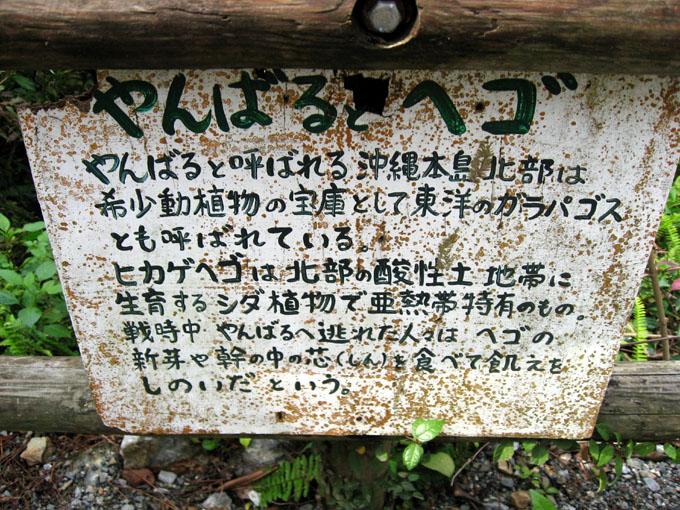 やんばるとヘゴ
やんばると呼ばれる沖縄本島北部は
希少動植物の宝庫として東洋のガラパゴス
とも呼ばれている。
ヒカゲヘゴは北部の酸性土地帯に
生育するシダ植物で亜熱帯特有のもの。
戦時中やんばるへ逃れた人々は ヘゴの
新芽や幹の中の芯(しん)を食べて飢えを
しのいだという。